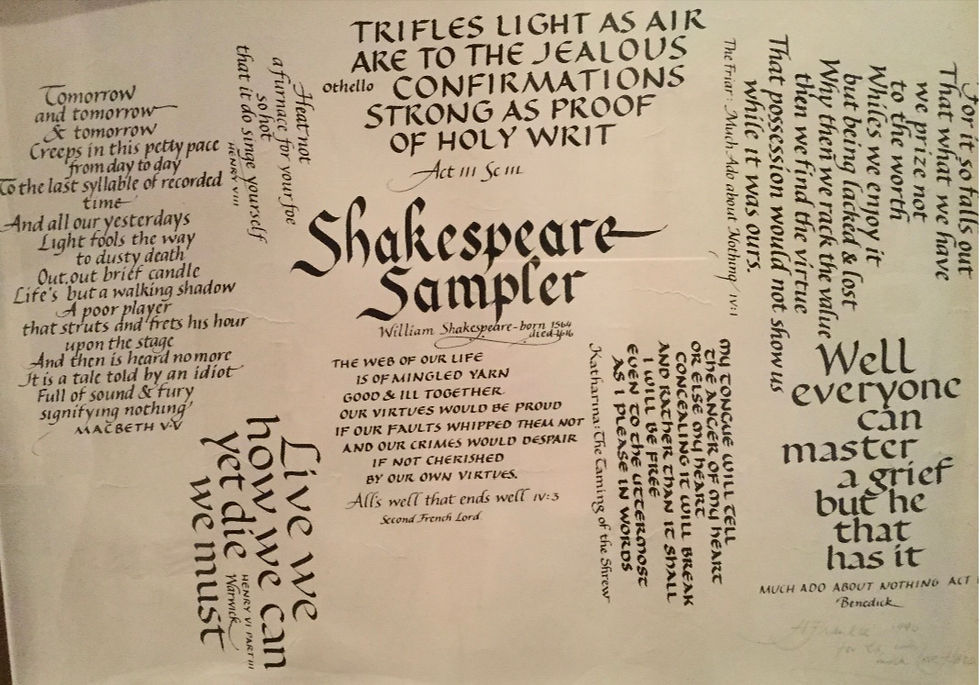 TRIFLES LIGHT AS AIR
ARE TO THE JEALOUS
Othello CONFIRMATIONS
STRONG AS PROOF
OF HOLY WRIT
Act III Sc III
Tomorrow
and tomorrow
& tomorrow
Creeps in this petty pace
from day to day
To the last syllable of recorded
time
And all our yesterdays
Light fools the way
to dusty death
Out, out brief candle
Life's but a walking shadow
A poor player
that struts and frets his hour
upon the stage
And then is heard no more
It is a tale told by an idiot
Full of sound & fury
signifying nothing
MACBETH V.V
Heat not
a furnace for your foe
so hot
that it do singe yourself
HENRY VIII
Shakespeare
Sampler
William Shakespeare - born 1564
died
THE WEB OF OUR LIFE
IS OF MINGLED YARN
GOOD & ILL TOGETHER.
OUR VIRTUES WOULD BE PROUD
IF OUR FAULTS WHIPPED THEM NOT
AND OUR CRIMES WOULD DESPAIR
IF NOT CHERISHED
BY OUR OWN VIRTUES.
All's well that ends well IV:3
Second French Lord.
Live we
how we can
yet die
we must
HENRY VI PART III
Warwick
My TONGUE WILL TELL
THE ANGER OF MY HEART
OR ELSE MY HEART
CONCEALING IT WILL BREAK
AND RATHER THAN IT SHALL
I WILL BE FREE
EVEN TO THE UTTERMOST
AS I PLEASE IN WORDS
Katharina: The Taming of the Shrew
For it so falls out
That what we have
we prize not
to the worth
Whiles we enjoy it
but being lacked & lost
Why then we rack the value
then we find the virtue
That possession would not show us
while it was ours.
The Friar: Much Ado about Nothing IV:I
Well
everyone
can
master
a grief
but he
that
has it
MUCH ADO ABOUT NOTHING ACT
Benedick